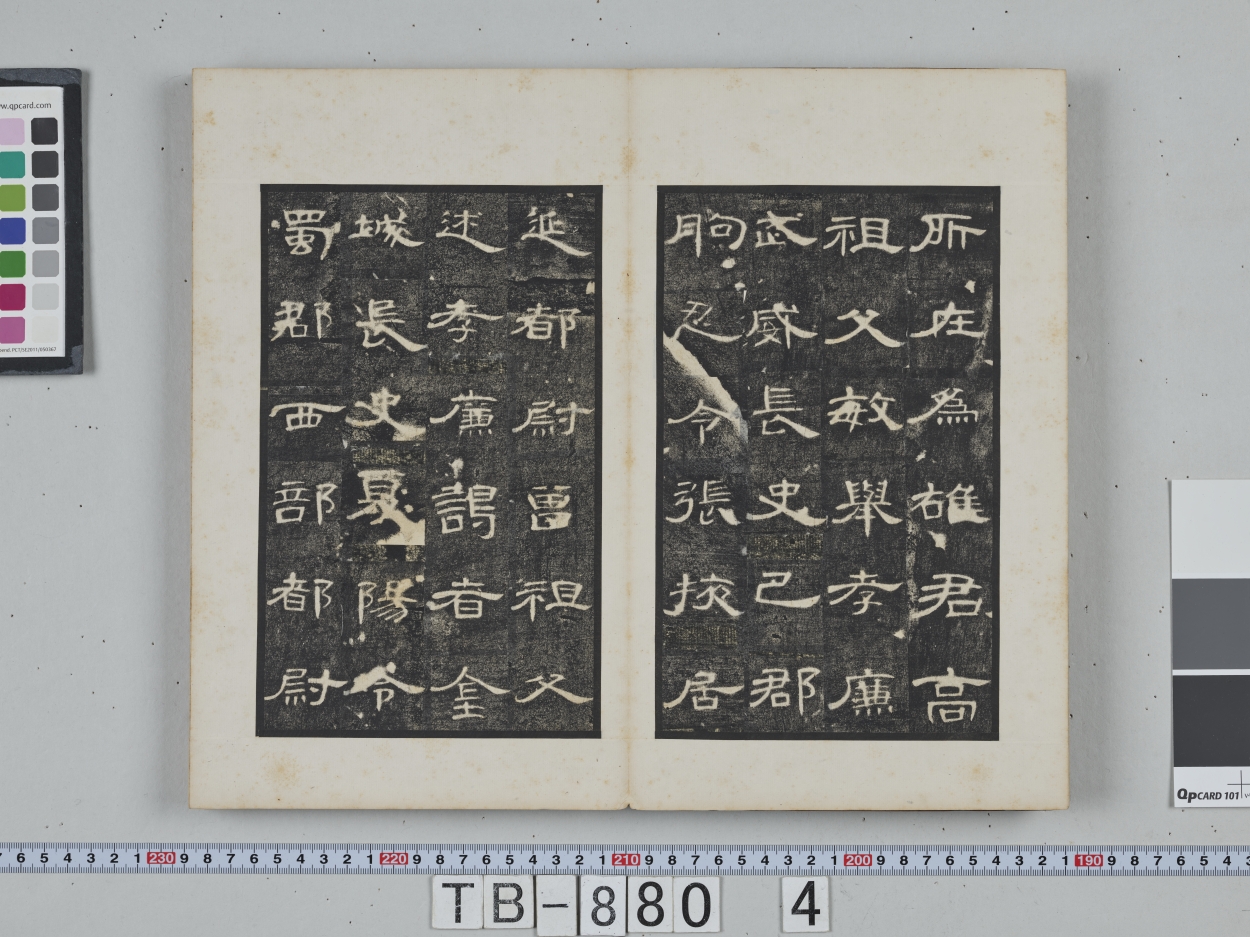 所在為雄君高
祖父敏舉孝廉
武威長史巴郡
朐忍令張掖居
延都尉曾祖父
述孝廉謁者金
城長史夏陽令
蜀郡西部都尉
w.qpcard.com
QPCARD 101
6 5 4 3 2 1 230 9 8 7 6 5 4 3 2 1 220 9 8 7 6 5 4 3 2 1 210 9 8 7 6 5 4 3 2 1 200 9 8 7 6 5 4 3 2 1 190 9 8 7 6 5 4 3
TB-880 4